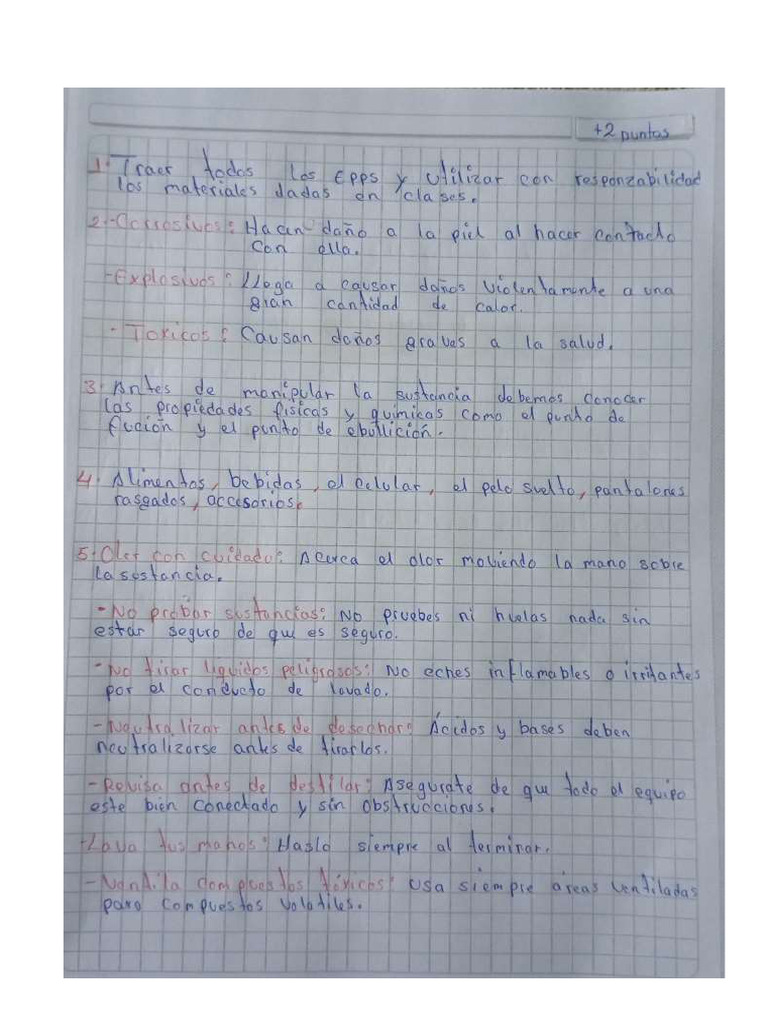 +2 puntos
1. Traer todos los EPPS y utilizar con responzabilidad
los materiales dadas en clases.
2.-Corrosivos: Hacen daño a la piel al hacer contacto
con ella.
-Explosivos: Llega a causar daños violentamente a una
gran cantidad de calor.
- Toxicos: Causan daños graves a la salud.
3. Antes de manipular la sustancia debemos conocer
las propiedades físicas y químicas como el punto de
fución y el punto de ebullición.
4. Alimentos, bebidas, el celular, el pelo suelto, pantalones
rasgados, accesorios.
5. Oler con cuidado: Acerca el olor moviendo la mano sobre
la sustancia.
- No probar sustancias: No pruebes ni huelas nada sin
estar seguro de que es seguro.
- No tirar líquidos peligrosos: No eches inflamables o irritantes
por el conducto de lavado.
- Neutralizar antes de desechar: Ácidos y bases deben
neutralizarse antes de tirarlos.
- Revisa antes de destilar: Asegúrate de que todo el equipo
este bien conectado y sin obstrucciones.
- Lava tus manos: Haslo siempre al terminar.
- Ventila compuestos tóxicos: Usa siempre áreas ventiladas
para compuestos volatiles.